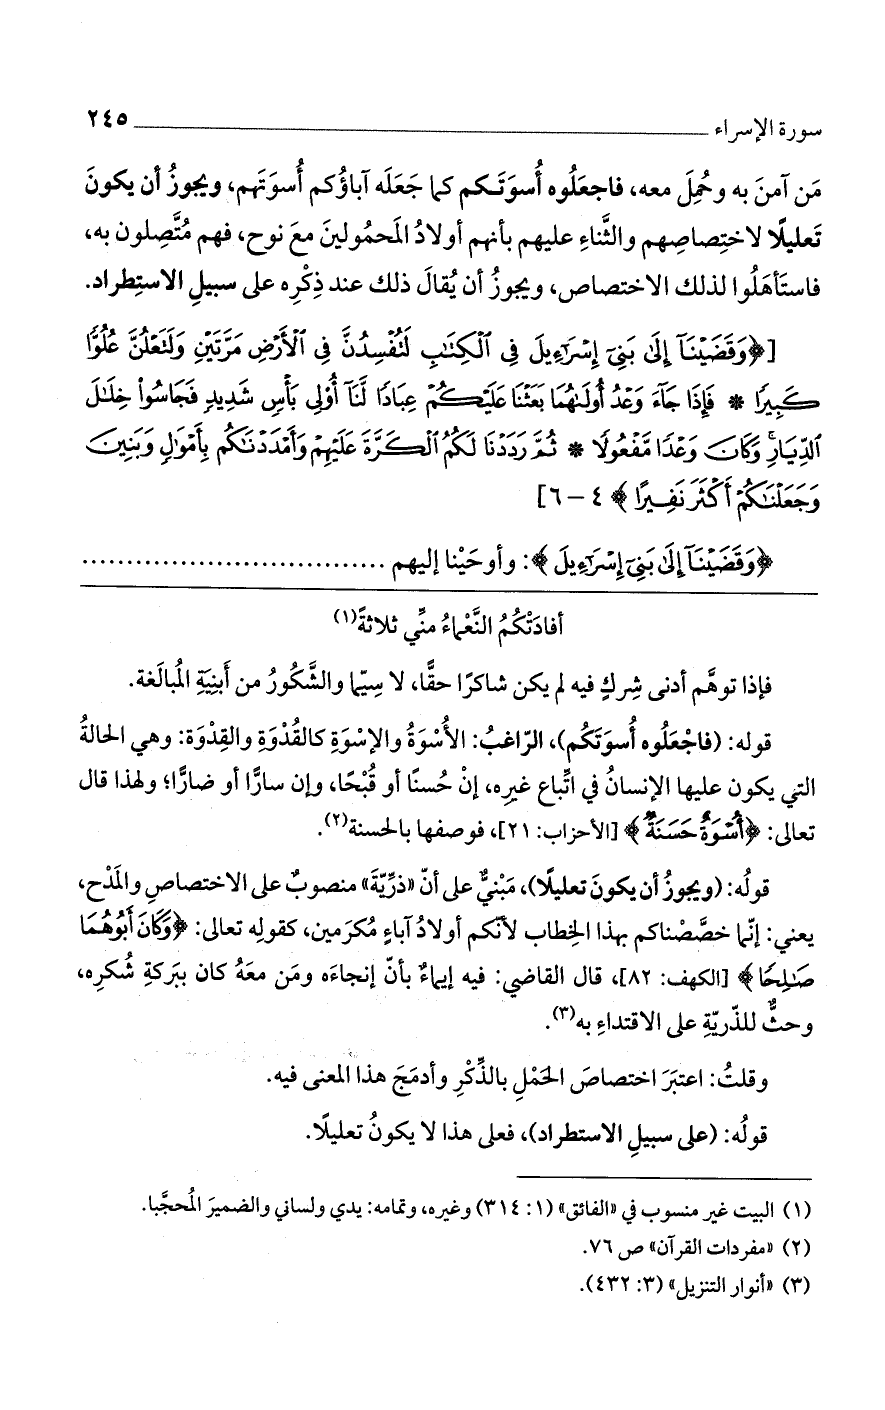 سورة الإسراء ٢٤٥
مَن آمنَ به وحُمِلَ معه، فاجعَلُوه أُسوَتَكم كما جَعَلَه آباؤُكم أُسوَتَهم، ويجوزُ أن يكونَ
تَعليلًا لاختِصاصِهم والثَّناءِ عليهم بأنهم أولادُ المَحمُولينَ معَ نوح، فهم مُتَّصِلون به،
فاستَأهَلُوا لذلك الاختصاص، ويجوزُ أن يُقالَ ذلك عند ذِكْرِه على سبيلِ الاستِطراد.
[﴿وَقَضَيْنَآ إِلَىٰ بَنِىٓ إِسْرَٰٓءِيلَ فِى ٱلْكِتَٰبِ لَتُفْسِدُنَّ فِى ٱلْأَرْضِ مَرَّتَيْنِ وَلَتَعْلُنَّ عُلُوًّا
كَبِيرًا * فَإِذَا جَآءَ وَعْدُ أُولَىٰهُمَا بَعَثْنَا عَلَيْكُمْ عِبَادًا لَّنَآ أُو۟لِى بَأْسٍ شَدِيدٍ فَجَاسُوا۟ خِلَٰلَ
ٱلدِّيَارِ ۚ وَكَانَ وَعْدًا مَّفْعُولًا * ثُمَّ رَدَدْنَا لَكُمُ ٱلْكَرَّةَ عَلَيْهِمْ وَأَمْدَدْنَٰكُم بِأَمْوَٰلٍ وَبَنِينَ
وَجَعَلْنَٰكُمْ أَكْثَرَ نَفِيرًا﴾ ٤ – ٦]
﴿وَقَضَيْنَآ إِلَىٰ بَنِىٓ إِسْرَٰٓءِيلَ﴾: وأوحَيْنا إليهم ..................................
أفادَتْكُمُ النَّعْماءُ منِّي ثلاثةً(١)
فإذا توهَّم أدنى شِركٍ فيه لم يكن شاكرًا حقًّا، لا سيّما والشَّكُورُ من أبنِيَةِ المُبالَغة.
قوله: (فاجْعَلُوه أُسوَتَكُم)، الرّاغبُ: الأُسْوَةُ والإسْوَةِ كالقُدْوَةِ والقِدْوَة: وهي الحالةُ
التي يكون عليها الإنسانُ في اتِّباع غيرِه، إنْ حُسنًا أو قُبْحًا، وإن سارًّا أو ضارًّا؛ ولهذا قال
تعالى: ﴿أُسْوَةٌ حَسَنَةٌ﴾ [الأحزاب: ٢١]، فوصفها بالحسنة(٢).
قولُه: (ويجوزُ أن يكونَ تعليلًا)، مَبْنيٌّ على أنّ «ذرِّيّةَ» منصوبٌ على الاختصاصِ والمَدْح،
يعني: إنّما خصَّصْناكم بهذا الخِطاب لأنّكم أولادُ آباءٍ مُكرَمين، كقولِه تعالى: ﴿وَكَانَ أَبُوهُمَا
صَٰلِحًا﴾ [الكهف: ٨٢]، قال القاضي: فيه إيماءٌ بأنّ إنجاءَه ومَن معَهُ كان ببَركةِ شُكرِه،
وحثٌّ للذّريّةِ على الاقتداءِ به(٣).
وقلتُ: اعتبَرَ اختصاصَ الحَمْلِ بالذِّكْرِ وأدمَجَ هذا المعنى فيه.
قولُه: (على سبيلِ الاستطراد)، فعلى هذا لا يكونُ تعليلًا.
(١) البيت غير منسوب في «الفائق» (١: ٣١٤) وغيره، وتمامه: يدي ولساني والضميرَ المُحجَّبا.
(٢) «مفردات القرآن» ص ٧٦.
(٣) «أنوار التنزيل» (٣: ٤٣٢).